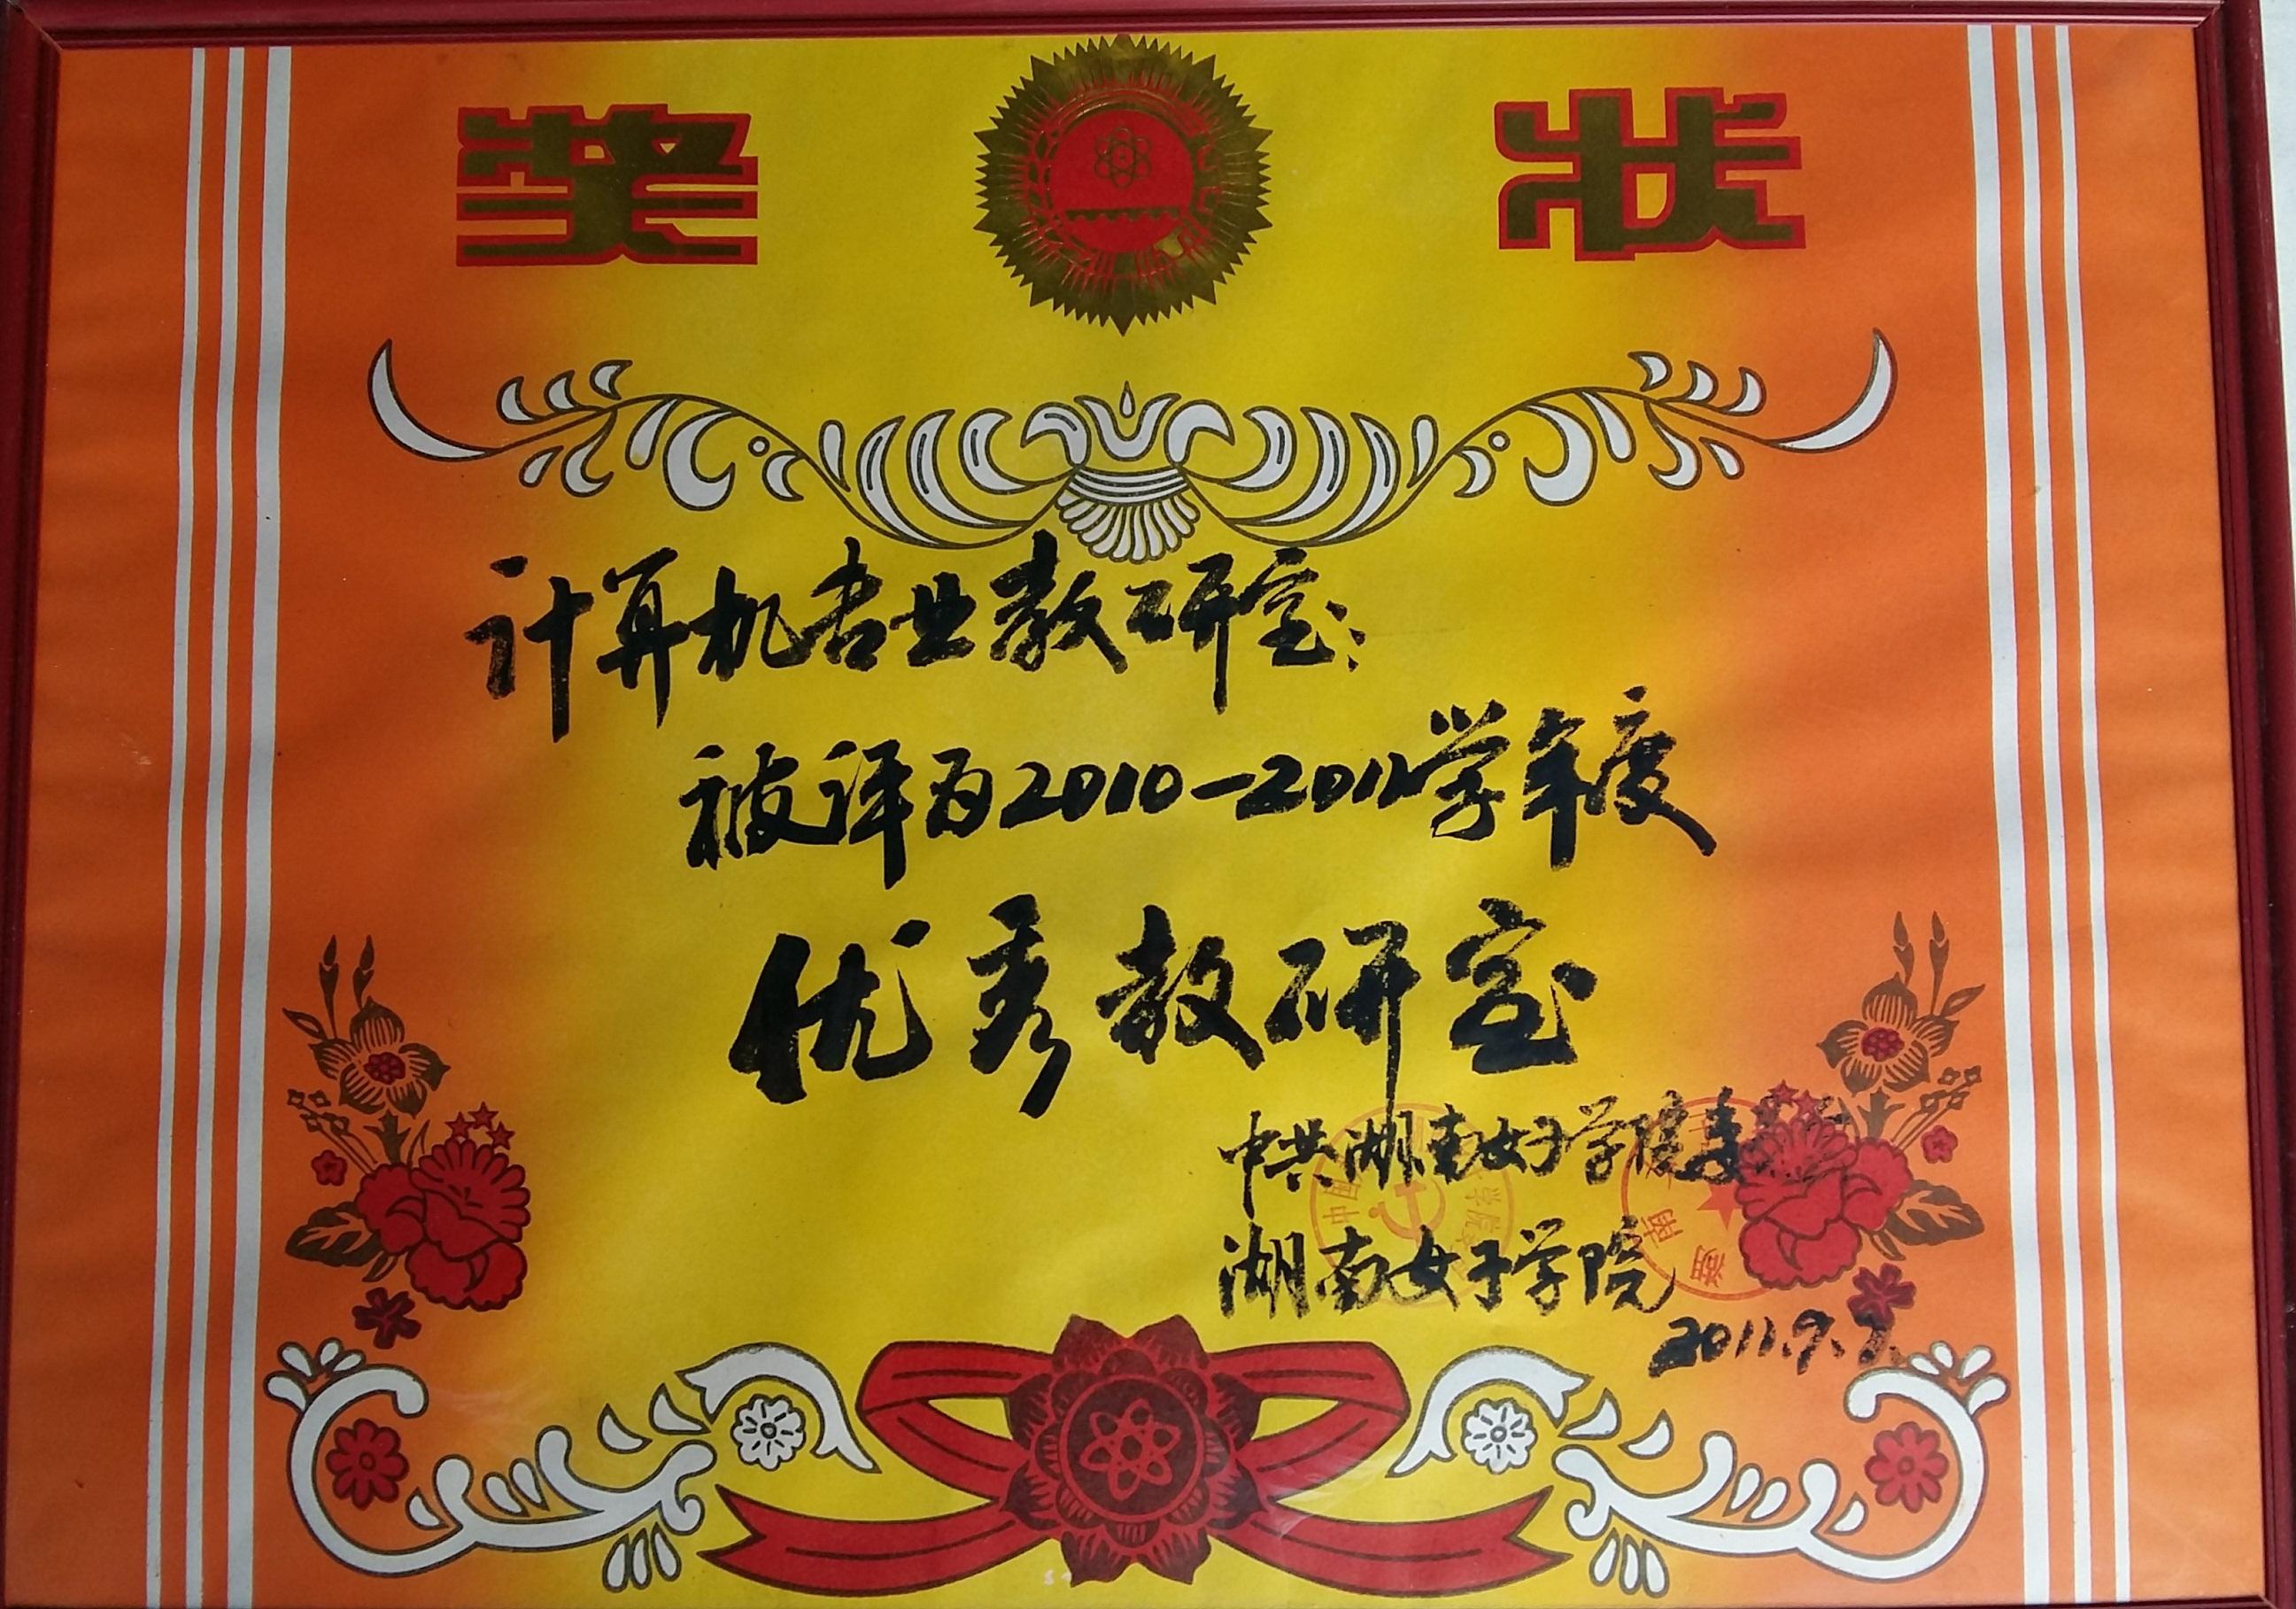 奖 状
计算机专业教研室:
被评为2010-2011学年度
优秀教研室
中共湖南女子学院委
湖南女子学院
2011.9.7.